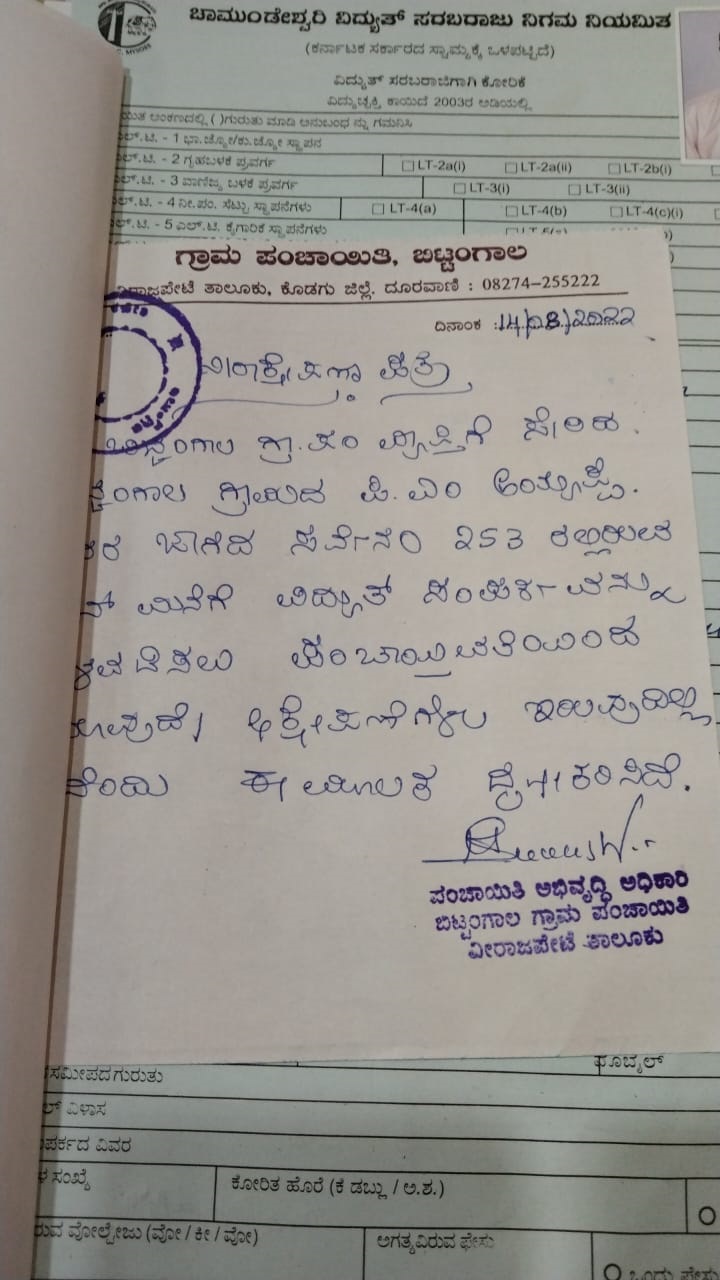 ಚಾಮುಂಡೇಶ್ವರಿ ವಿದ್ಯುತ್ ಸರಬರಾಜು ನಿಗಮ ನಿಯಮಿತ
(ಕರ್ನಾಟಕ ಸರ್ಕಾರದ ಸ್ವಾಮ್ಯಕ್ಕೆ ಒಳಪಟ್ಟಿದೆ)
ವಿದ್ಯುತ್ ಸರಬರಾಜಿಗಾಗಿ ಕೋರಿಕೆ
ವಿದ್ಯುಚ್ಛಕ್ತಿ ಕಾಯಿದೆ 2003ರ ಅಡಿಯಲ್ಲಿ
ಅಂಕಣದಲ್ಲಿ ( )ಗುರುತು ಮಾಡಿ ಅನುಬಂಧ ನ್ನು ಗಮನಿಸಿ
ಲ್.ಟಿ. - 1 ಭಾ.ಜ್ಯೋ/ಕು.ಜ್ಯೋ ಸ್ಥಾಪನ
ಲ್.ಟಿ. - 2 ಗೃಹಬಳಕೆ ಪ್ರವರ್ಗ LT-2a(i) LT-2a(ii) LT-2b(i)
ಲ್.ಟಿ. - 3 ವಾಣಿಜ್ಯ ಬಳಕೆ ಪ್ರವರ್ಗ LT-3(i) LT-3(ii)
ಲ್.ಟಿ. - 4 ನೀ.ಪಂ. ಸೆಟ್ಟು ಸ್ಥಾಪನೆಗಳು LT-4(a) LT-4(b) LT-4(c)(i)
ಲ್.ಟಿ. - 5 ಎಲ್.ಟಿ. ಕೈಗಾರಿಕೆ ಸ್ಥಾಪನೆಗಳು
ಗ್ರಾಮ ಪಂಚಾಯಿತಿ, ಬಿಟ್ಟಂಗಾಲ
ವಿರಾಜಪೇಟೆ ತಾಲೂಕು, ಕೊಡಗು ಜಿಲ್ಲೆ. ದೂರವಾಣಿ : 08274-255222
ದಿನಾಂಕ : 14/08/2022
ನಿರಾಕ್ಷೇಪಣಾ ಪತ್ರ
ಬಿಟ್ಟಂಗಾಲ ಗ್ರಾ.ಪಂ ವ್ಯಾಪ್ತಿಗೆ ಸೇರಿದ
ಟ್ಟಂಗಾಲ ಗ್ರಾಮದ ಪಿ.ಎಂ
ರ ಜಾಗದ ಸರ್ವೆನಂ 253 ರಲ್ಲಿರುವ
ಮನೆಗೆ ವಿದ್ಯುತ್ ಸಂಪರ್ಕವನ್ನು
ಪಂಚಾಯಿತಿಯಿಂದ
ಆಕ್ಷೇಪಣೆಗಳು ಇರುವುದಿಲ್ಲ
ವೆಂದು ಈ ಮೂಲಕ ದೃಢೀಕರಿಸಿದೆ.
ಪಂಚಾಯಿತಿ ಅಭಿವೃದ್ಧಿ ಅಧಿಕಾರಿ
ಬಿಟ್ಟಂಗಾಲ ಗ್ರಾಮ ಪಂಚಾಯಿತಿ
ವೀರಾಜಪೇಟೆ ತಾಲೂಕು
ಸಮೀಪದಗುರುತು
ಲ್ ವಿಳಾಸ
ಪರ್ಕದ ವಿವರ
ಸಂಖ್ಯೆ ಕೋರಿತ ಹೊರೆ (ಕೆ ಡಬ್ಲು / ಅ.ಶ.)
ರುವ ವೋಲ್ಟೇಜು (ವೋ / ಕೀ / ವೋ) ಅಗತ್ಯವಿರುವ ಫೇಸು